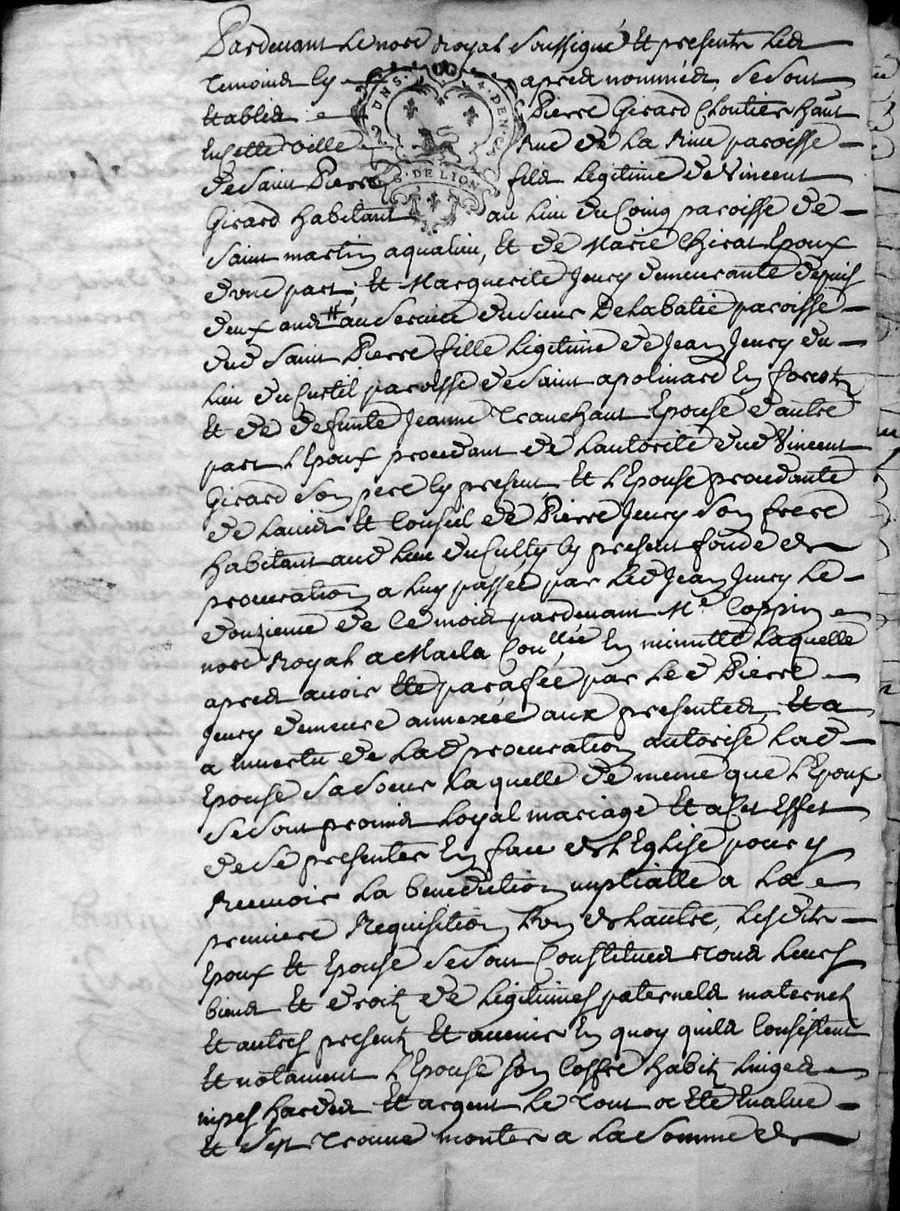 Pardevant le nore royal soussigné et presents les
temoins cy apres nommés, se sont
etablis Pierre Girard cloutier habt
en cette ville rue de la rive paroisse
de saint Pierre fils legitime de Vincent
Girard habitant au lieu du Coing paroisse de
saint martin aqualieu, et de Marie Chirat Epoux
d'une part; et Marguerite Jeury demeurante depuis
deux ans au service du sieur Delabatie paroisse
dud saint Pierre fille legitime de Jean Jeury du
lieu du Curtil paroisse de saint apolinard en forest
et de defunte Jeanne Tranchant Epouse d'autre
part l'Epoux procedant de l'autorité dud Vincent
Girard son pere cy present, et l'Epouse procedante
de l'avis et conseil de Pierre Jeury son frere
habitant aud lieu du Culty cy present fondé de
procuration a luy passée par led Jean Jeury le
douzieme de ce mois pardevant Me Coppin
nore Royal a Macla en minutte laquelle
apres avoir eté parafée par led Pierre
Jeury demeure annexée aux presentes, et a
en vertu de lad procuration autorisé lad
Epouse sa soeur laquelle de meme que l'Epoux
se sont promis loyal mariage et a cet effet
de se presenter en face de l'Eglise pour y
recevoir la benediction nuptialle a la
premiere requisition l'un de l'autre, lesdits
Epoux et Epouse se sont constitués tous leurs
biens et droits de legitimes paternels maternels
et autres presents et avenir en quoy quils consistent
et notament l'Epouse son coffre habits linges
nipes hardes et argent le tout a eté evalué
et sest trouvé monter a la somme de
G. DE LION